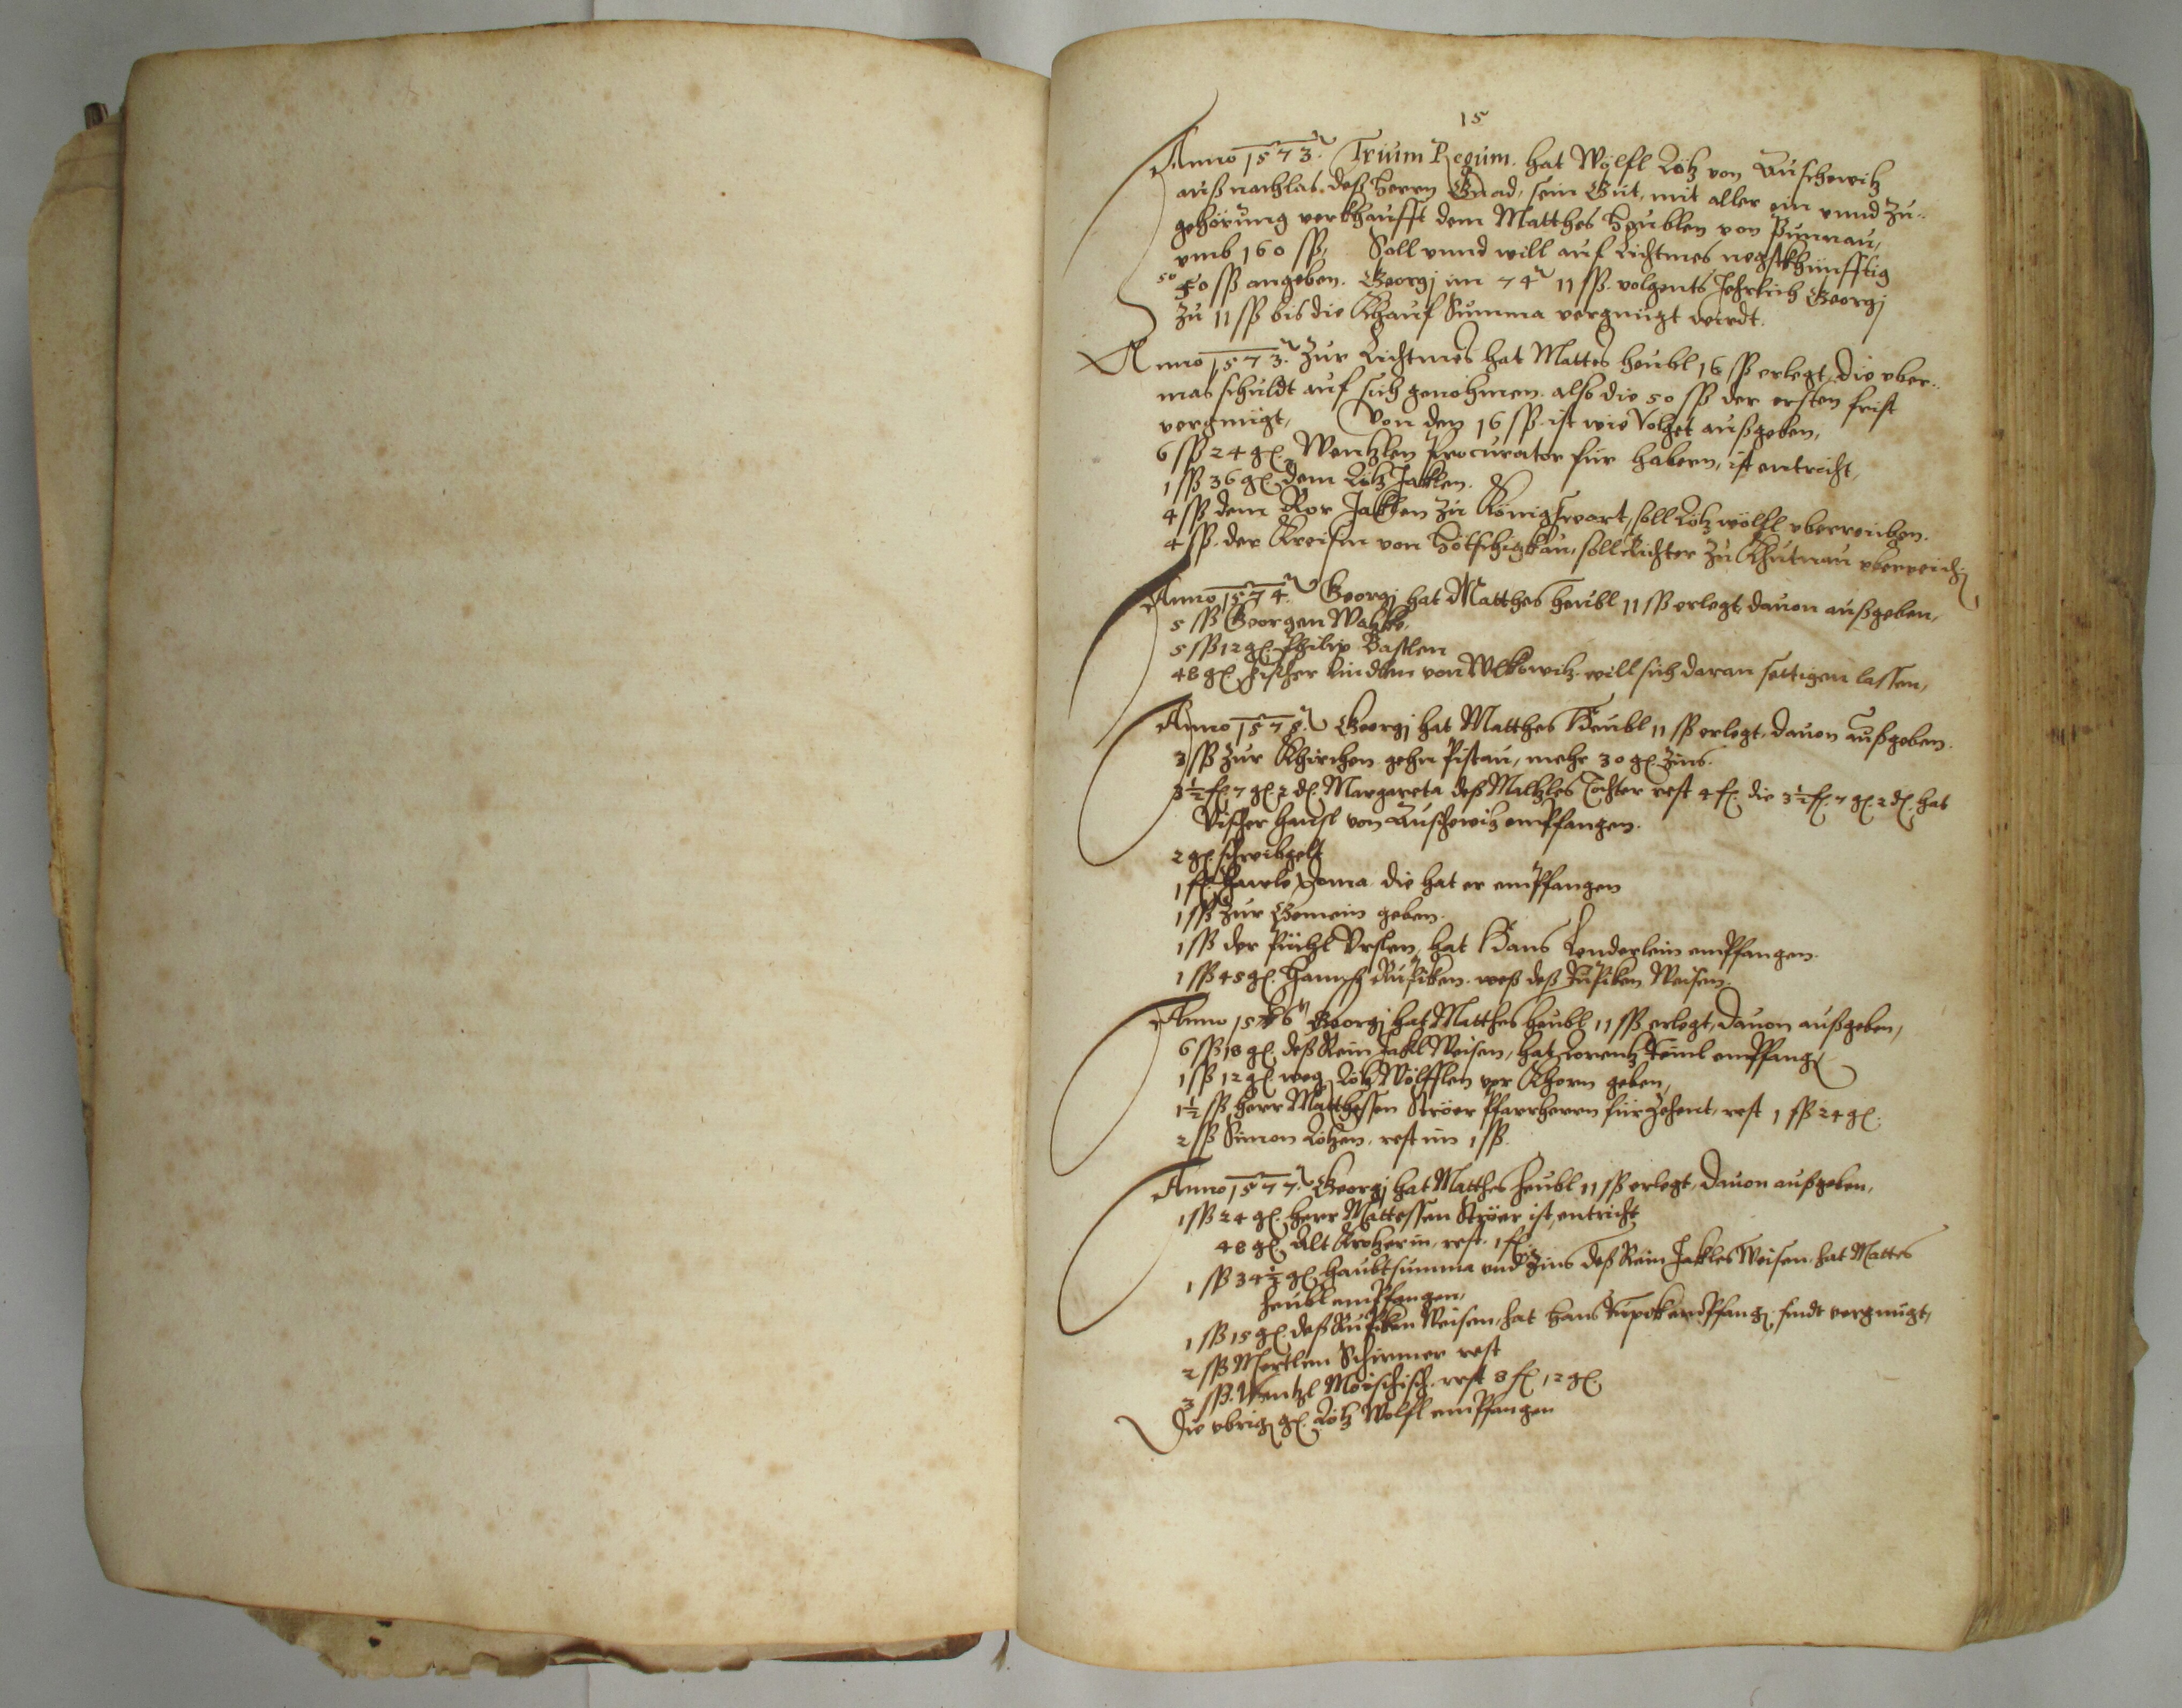 15
Anno 1573. Trium Regum. hat Wölfl Lötz von Auschowitz
auß nachlas deß Herrn Gnad, sein Gut, mit aller ein vnnd zu-
gehörung verkhaufft dem Matthes Heublen von Punnau,
vmb 160 ßß, Soll vnnd will auf Lichtmes negstkhünfftig
50 50 ßß angeben. Georgj im 74 11 ßß. volgents Jehrlich Georgj
zu 11 ßß bis die Khauf Summa vergnügt wirdt.
Anno 1573. Zur Lichtmes hat Mattes heubl 16 ßß erlegt, die vber-
mas schuldt auf sich genohmen. also die 50 ßß der ersten frist
vergnügt, Von den 16 ßß. ist wie Volget außgeben,
6 ßß 24 gl. Wentzlen Procurator für habern, ist entricht,
1 ßß 36 gl. dem Lötz Jaklen.
4 ßß dem Ror Jaklen zu Königswart, soll Lötz wölfl vberreichen.
4 ßß. der Kreisin von Hötschigkau, soll Richter zu Khutnau vberreich
Anno 1574. Georgj hat Matthes heubl 11 ßß erlegt, dauon außgeben,
5 ßß Georgen
5 ßß 12 gl. Philip Bastlen
48 gl. fischer von will sich daran settigen lassen,
Anno 1575. Georgj hat Matthes Heubl 11 ßß erlegt, dauon außgeben.
3 ßß zur Khirchen gehn Pistau, mehr 30 gl. Zins.
3½ fl. 7 gl. 2 d. Margareta deß Maltzles Tochter rest 4 fl. die 3½ fl. 7 gl. 2 d. hat
Vischer hansl von Auschowitz empfangen.
2 gl. schreibgelt
1 fl. die hat er empfangen
1 ßß zur Gemein geben.
1 ßß der Vrslen, hat Hans Lenderlein empfangen.
1 ßß 45 gl. weß deß Weisen.
Anno 1576 Georgj hat Matthes heubl 11 ßß erlegt, dauon außgeben,
6 ßß 18 gl. deß Rein Jakl Weisen, hat Lorentz empfang
1 ßß 12 gl. weg Lötz Wölfflen vor Khorn geben,
1½ ßß herr Matthessen Ströer Pfarrherrn für Zehent, rest 1 ßß 24 gl.
2 ßß Simon Lötzen, rest im 1 ßß.
Anno 1577. Georgj hat Matthes heubl 11 ßß erlegt, dauon außgeben,
1 ßß 24 gl. herr Mattessen Ströer ist entricht
48 gl. Alt rest. 1 fl.
1 ßß 34½ gl. haubtsumma vnd Zins deß Rein Jakles Weisen hat Mattes
heubl empfangen,
1 ßß 15 gl. deß Weisen, hat Hans empfang, sindt vergnügt,
2 ßß Mertlen Schirmer rest
3 ßß. Wentzl rest 8 fl 12 gl.
Die vbrig gl. Lötz Wolfl empfangen